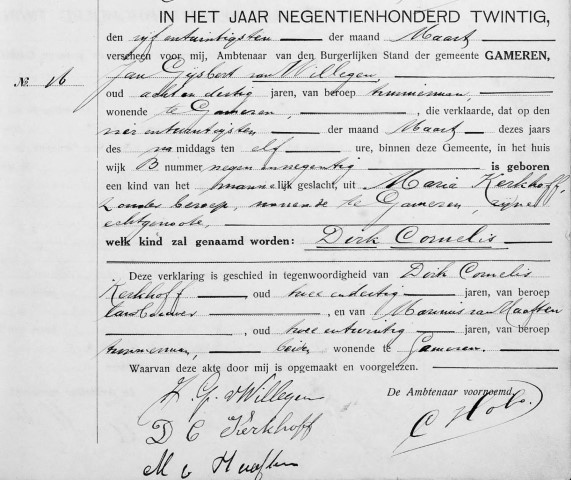 IN HET JAAR NEGENTIENHONDERD TWINTIG,
den vijf en twintigsten der maand Maart
verscheen voor mij, Ambtenaar van den Burgerlijken Stand der gemeente GAMEREN,
No. 16 Jan Gijsbert van Willegen,
oud acht en dertig jaren, van beroep
wonende te Gameren, die verklaarde, dat op den
vier en twintigsten der maand Maart dezes jaars
des middags ten elf ure, binnen deze Gemeente, in het huis
wijk B nummer negen en negentig is geboren
een kind van het mannelijk geslacht, uit Maria Kerkhoff,
zonder beroep, wonende te Gameren, zijne
echtgenoote,
welk kind zal genaamd worden: Dirk Cornelis
Deze verklaring is geschied in tegenwoordigheid van Dirk Cornelis
Kerkhoff oud twee en dertig jaren, van beroep
landbouwer, en van Marinus van Haaften
oud twee en twintig jaren, van beroep
beiden wonende te Gameren.
Waarvan deze akte door mij is opgemaakt en voorgelezen.
J. G. v Willegen
De Ambtenaar voornoemd,
D C Kerkhoff
M v Haaften